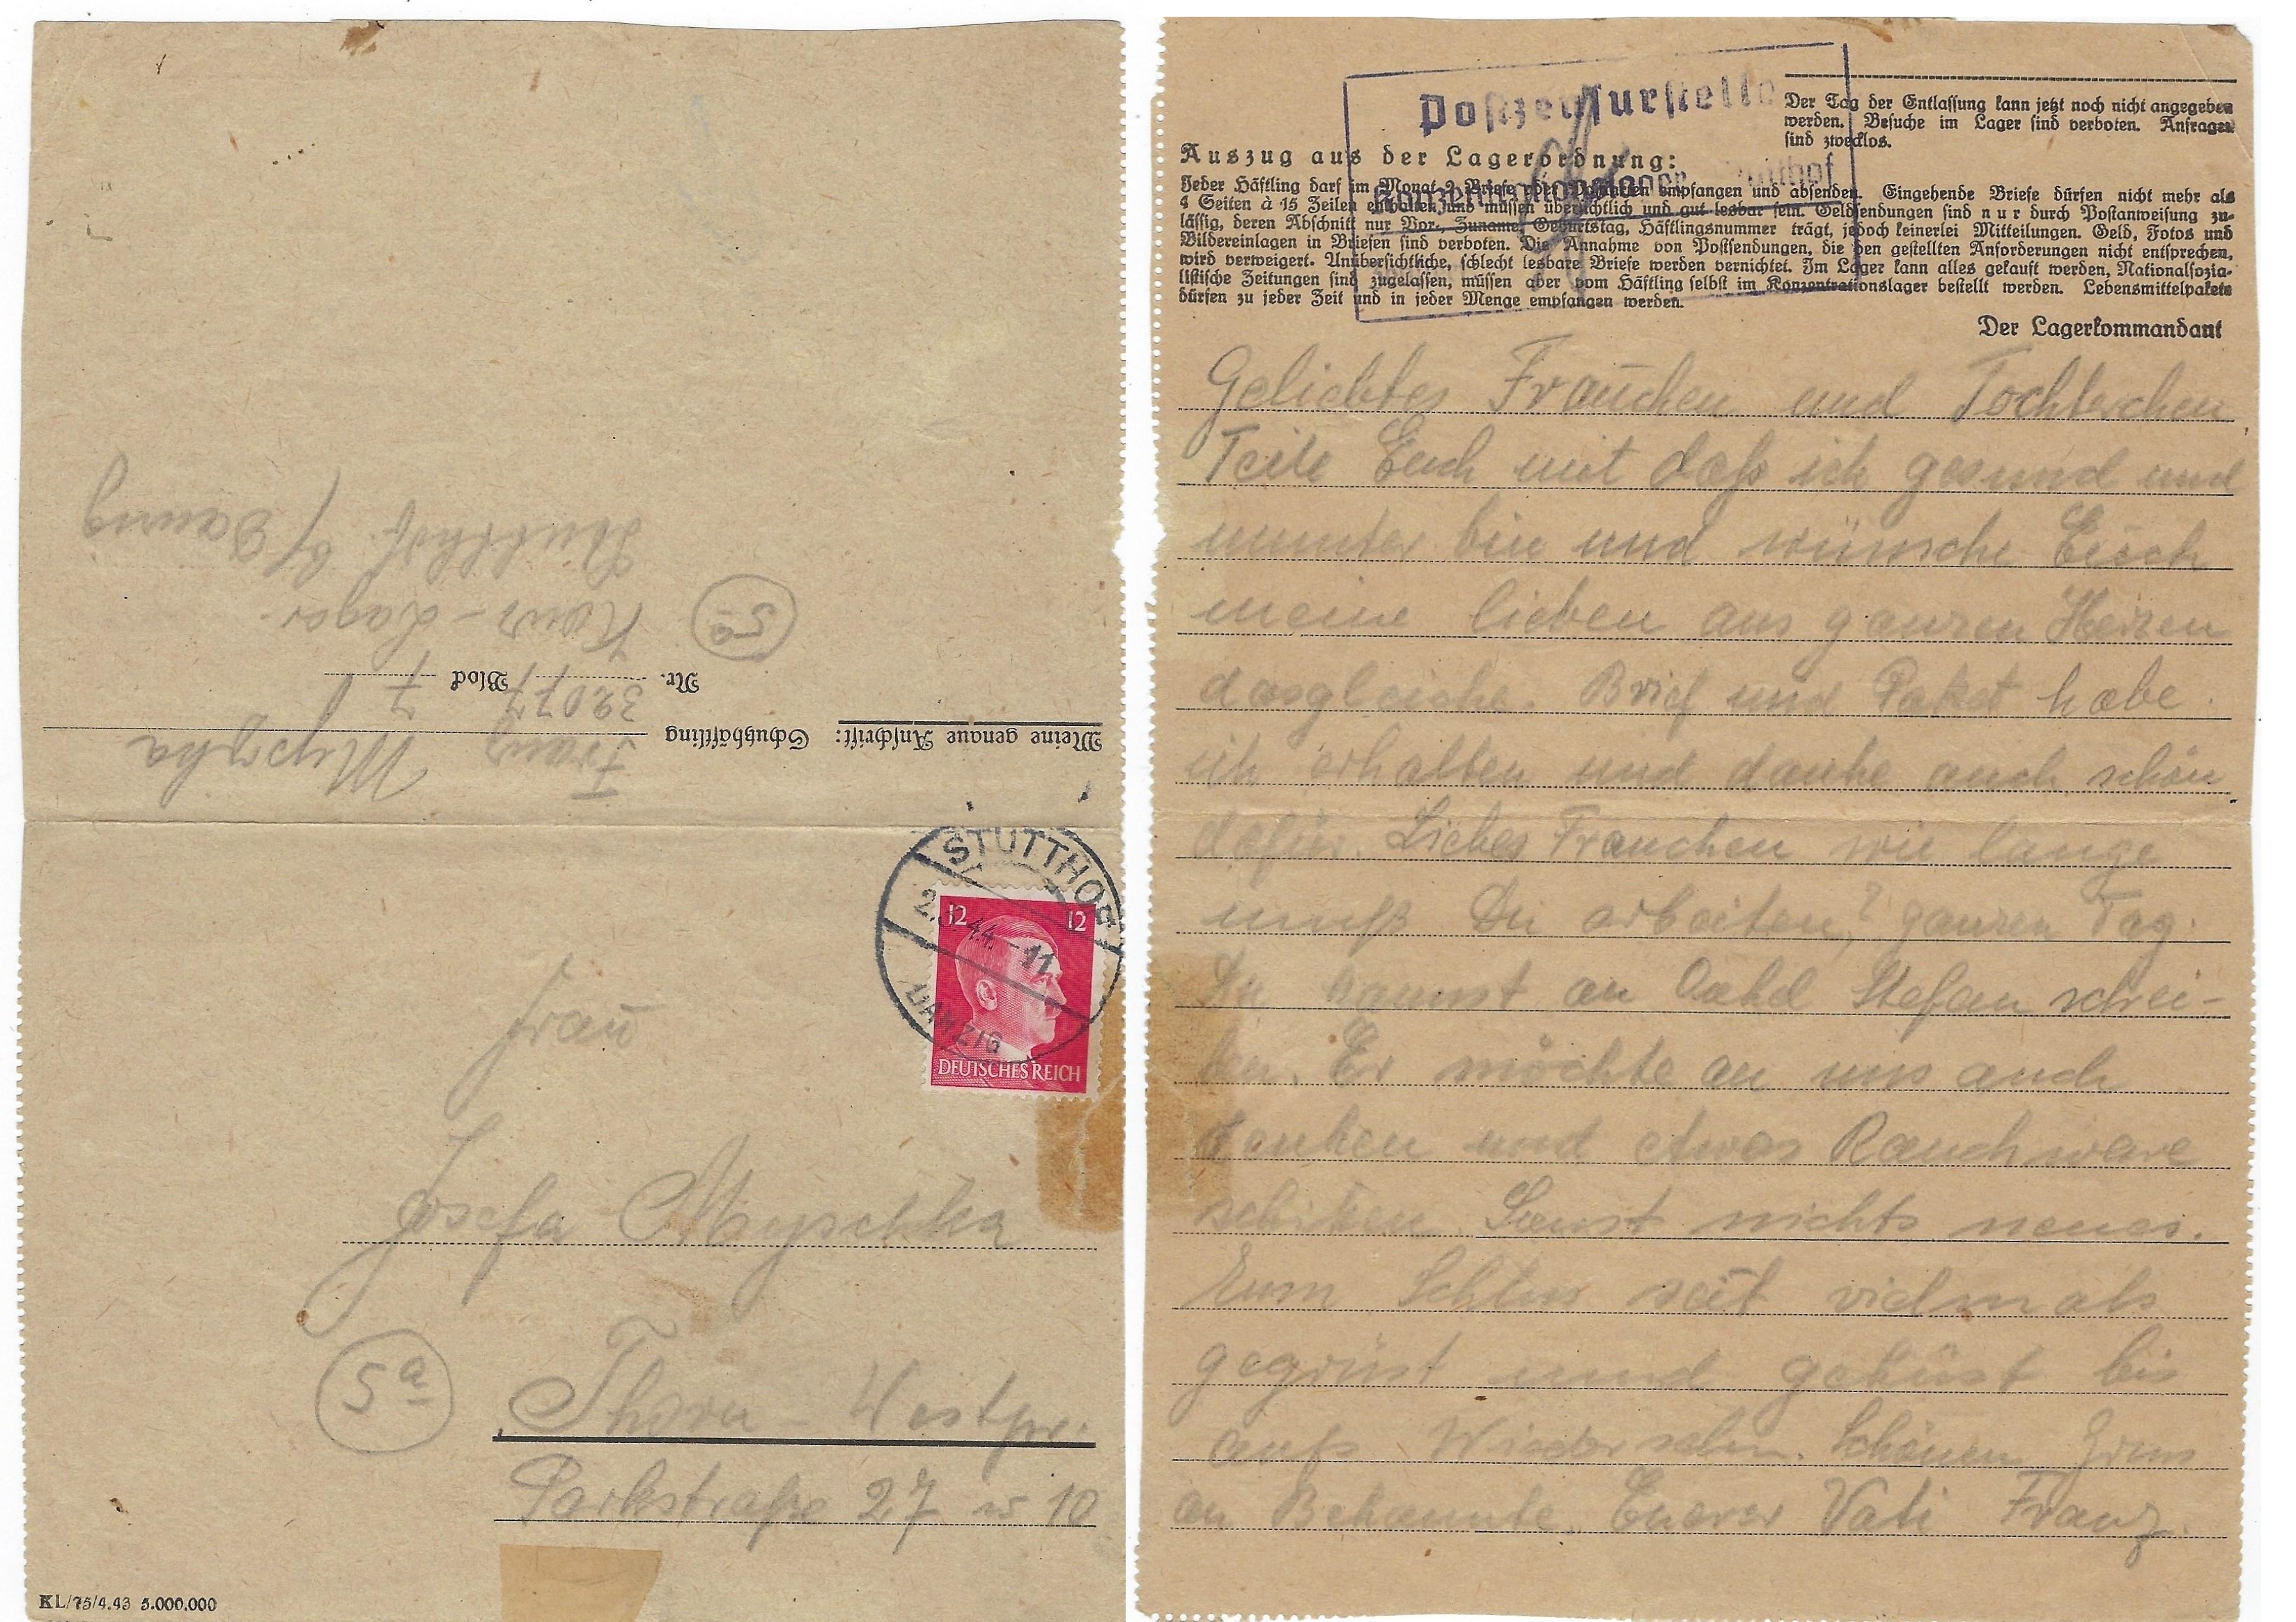 Meine genaue Anschrift: Schutzhäftling
Franz Myschka
Nr. 32077 Block 7
Konz-Lager
Stutthof b/ Danzig
5a
STUTTHOF
2. 44.-11
DANZIG
12 12
DEUTSCHES REICH
Frau
Josefa Myschka
5a
Thorn - Westpr.
Parkstraße 27 w 10
KL/75/4.43 5.000.000
Postzensurstelle
Konzentrationslager Stutthof
Der Tag der Entlassung kann jetzt noch nicht angegeben
werden. Besuche im Lager sind verboten. Anfragen
sind zwecklos.
Auszug aus der Lagerordnung:
Jeder Häftling darf im Monat 2 Briefe oder Postkarten empfangen und absenden. Eingehende Briefe dürfen nicht mehr als
4 Seiten à 15 Zeilen enthalten und müssen übersichtlich und gut lesbar sein. Geldsendungen sind nur durch Postanweisung zu-
lässig, deren Abschnitt nur Vor-, Zuname, Geburtstag, Häftlingsnummer trägt, jedoch keinerlei Mitteilungen. Geld, Fotos und
Bildereinlagen in Briefen sind verboten. Die Annahme von Postsendungen, die den gestellten Anforderungen nicht entsprechen,
wird verweigert. Unübersichtliche, schlecht lesbare Briefe werden vernichtet. Im Lager kann alles gekauft werden, Nationalsozia-
listische Zeitungen sind zugelassen, müssen aber vom Häftling selbst im Konzentrationslager bestellt werden. Lebensmittelpakete
dürfen zu jeder Zeit und in jeder Menge empfangen werden.
Der Lagerkommandant
Geliebtes Frauchen und Tochterchen
Teile Euch mit daß ich gesund und
munter bin und wünsche Euch
meine lieben aus ganzen Herzen
dasgleiche. Brief und Paket habe
ich erhalten und danke auch schön
dafür. Liebes Frauchen wie lange
muß Du arbeiten? ganzen Tag.
Du kannst an Onkel Stefan schrei-
ben. Er möchte an uns auch
denken und etwas Rauchware
schiken. Sonst nichts neues.
Zum Schlus seit vielmals
gegrüst und geküst bis
aufs Wiedersehn. Schönen Grus
an Bekannte. Euerer Vati Franz.